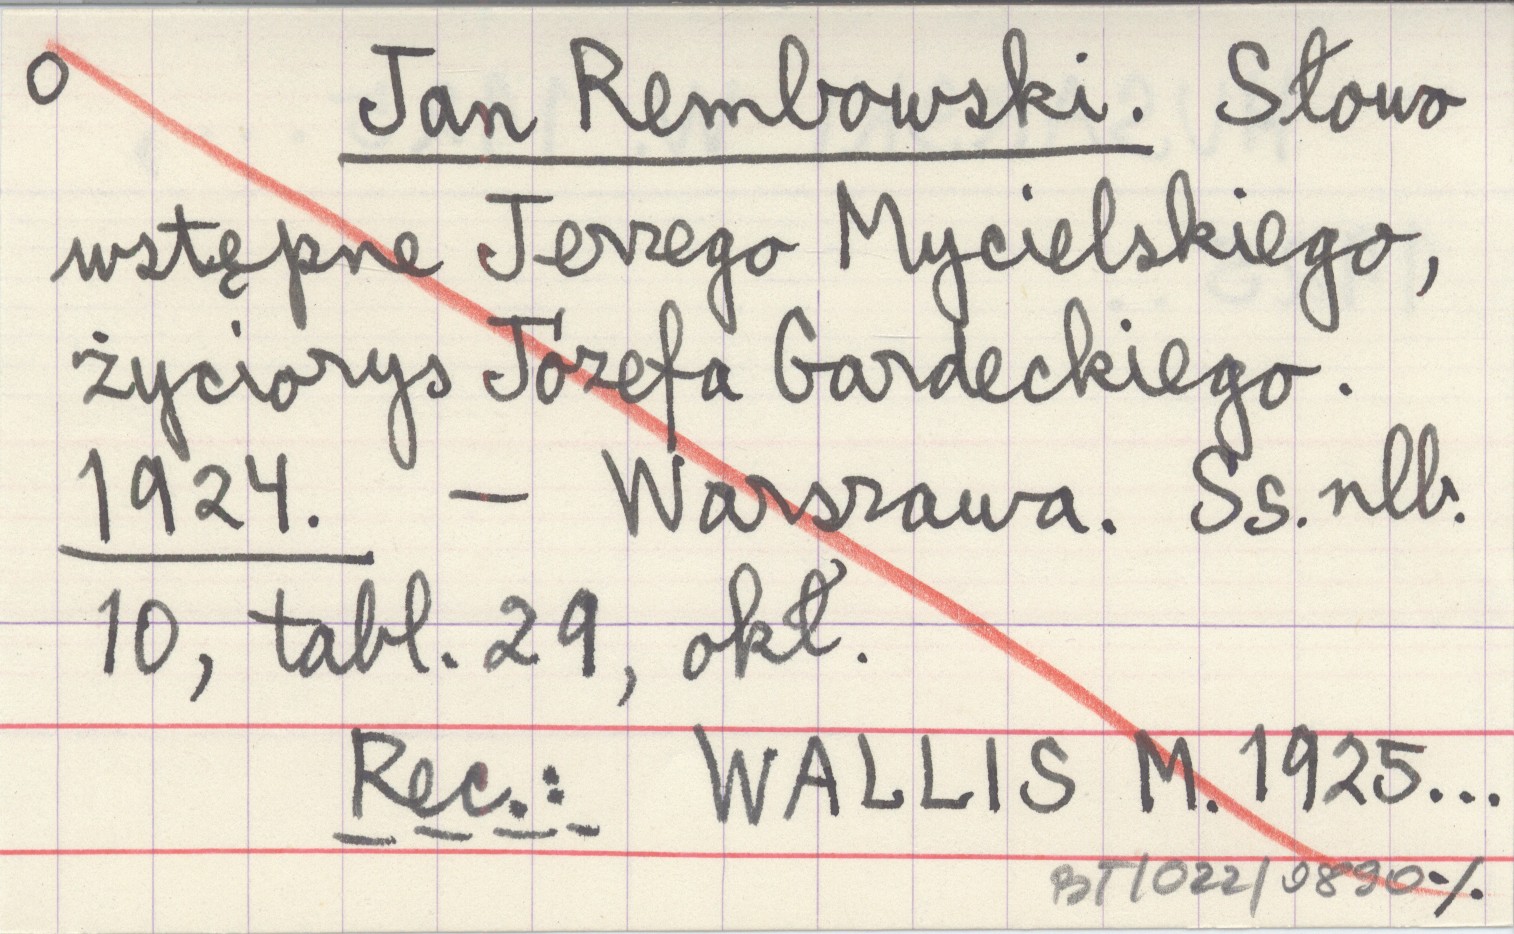 O Jan Rembowski. Słowo
wstępne Jerzego Mycielskiego,
życiorys Józefa Gardeckiego.
1924. – Warszawa. Ss. nlb.
10, tabl. 29, okł.
Rec.: WALLIS M. 1925...
BT/1022/9890-/.